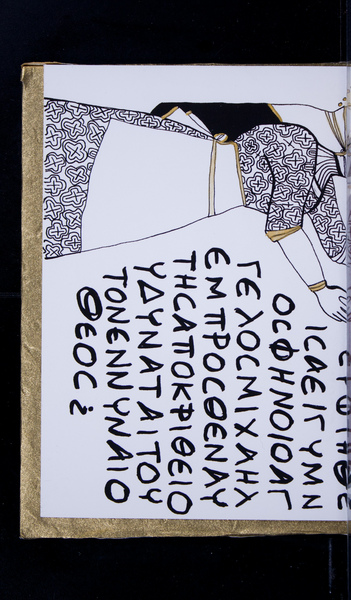 ΕΡΩΤΗΘΕ
ΙCΑΕΙΓΥΜΝ
ΟCΦΗΝΟΙΟΑΓ
ΓΕΛΟCΜΙΧΑΗΛ
ΕΜΠΡΟCΘΕΝΑΥ
ΤΗCΑΠΟΚΡΙΘΕΙΟ
ΥΔΥΝΑΤΑΙΤΟΥ
ΤΟΝΕΝΝΥΝΑΙΟ
ΘΕΟC;